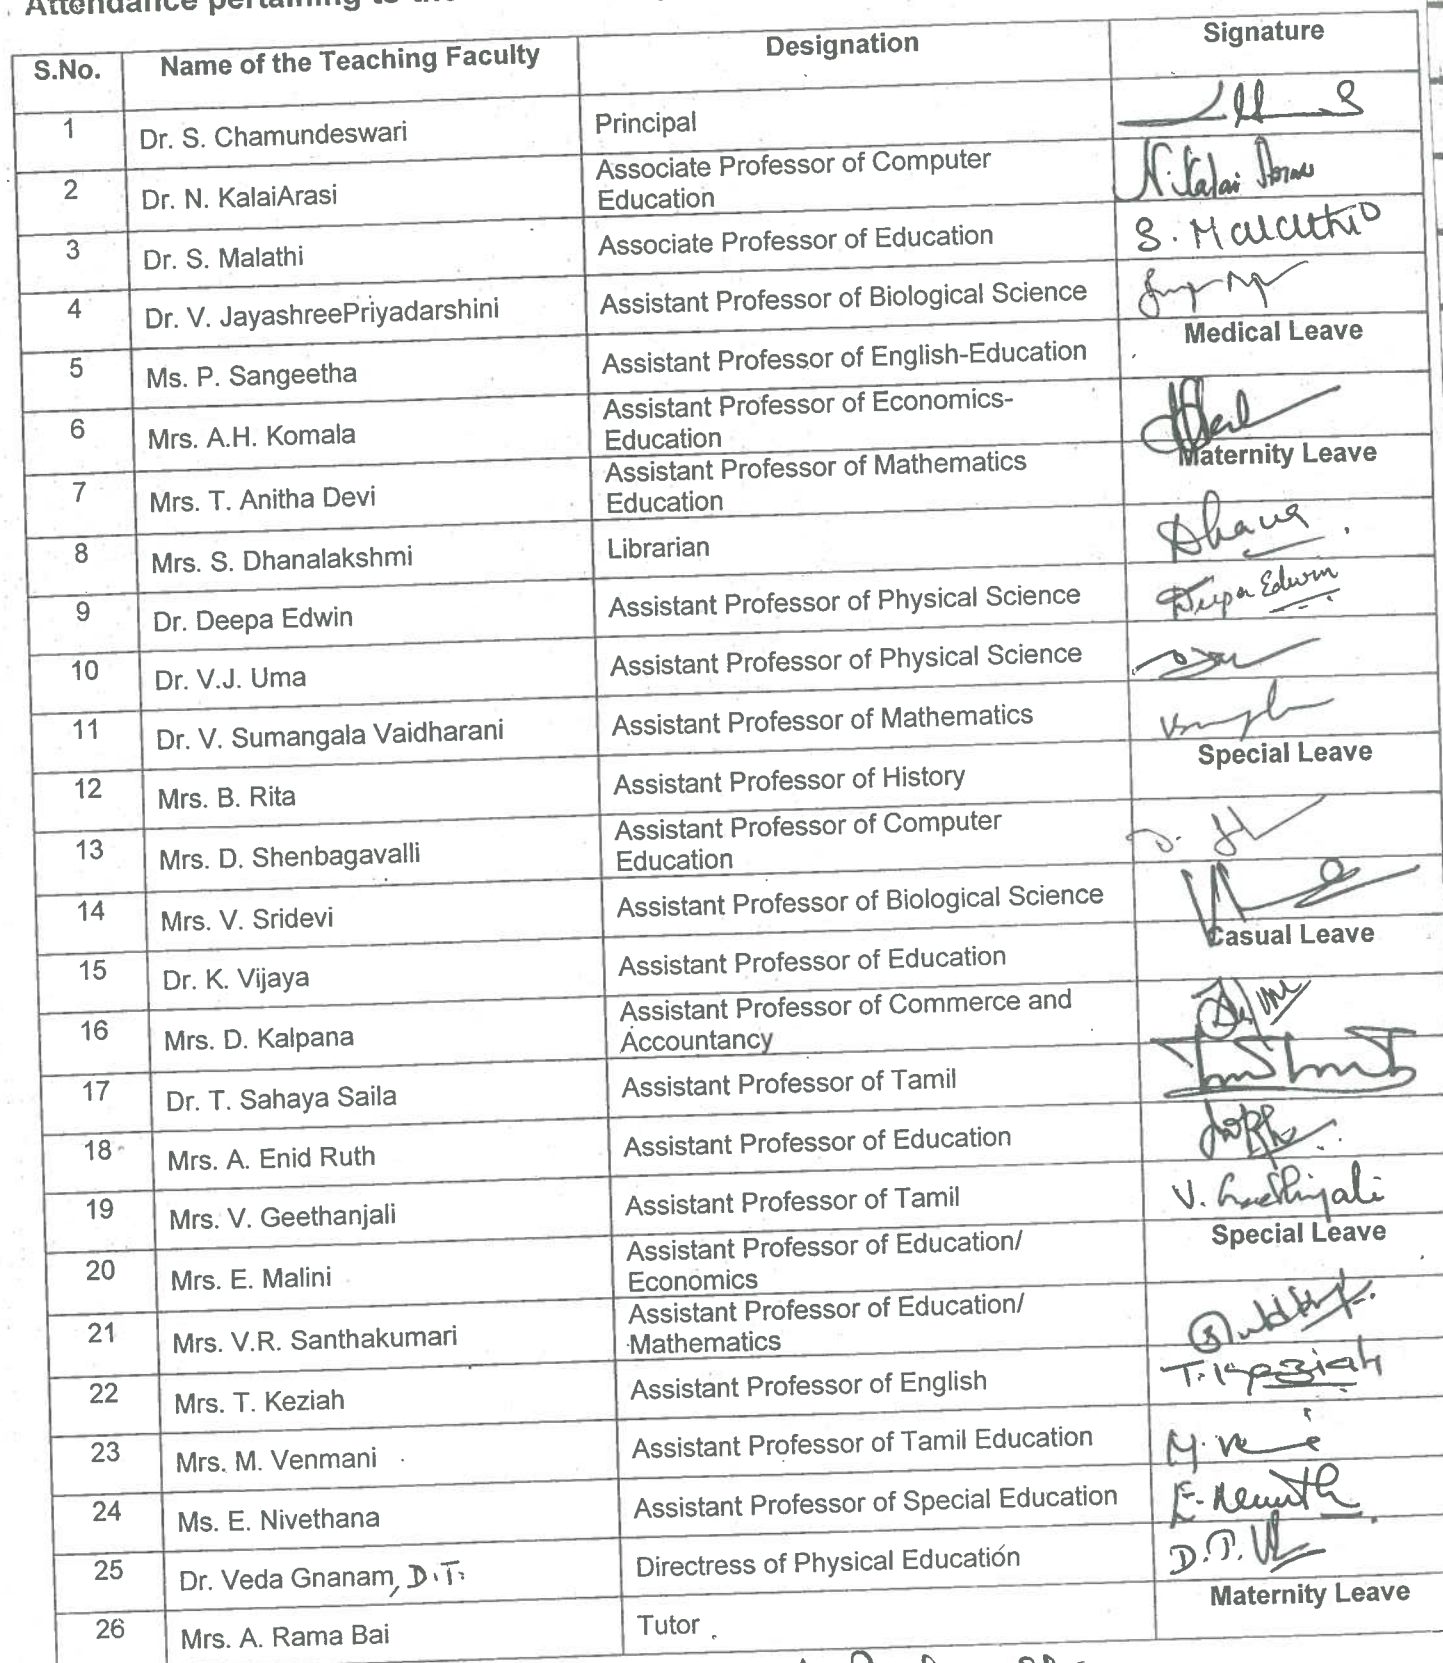 Attendance pertaining to the
S.No. Name of the Teaching Faculty Designation Signature
1 Dr. S. Chamundeswari Principal
2 Dr. N. KalaiArasi Associate Professor of Computer
Education N. Kalai Arasi
3 Dr. S. Malathi Associate Professor of Education S. Malathi
4 Dr. V. JayashreePriyadarshini Assistant Professor of Biological Science
5 Ms. P. Sangeetha Assistant Professor of English-Education Medical Leave
6 Mrs. A.H. Komala Assistant Professor of Economics-
Education
7 Mrs. T. Anitha Devi Assistant Professor of Mathematics
Education Maternity Leave
8 Mrs. S. Dhanalakshmi Librarian Dhana
9 Dr. Deepa Edwin Assistant Professor of Physical Science Deepa Edwin
10 Dr. V.J. Uma Assistant Professor of Physical Science
11 Dr. V. Sumangala Vaidharani Assistant Professor of Mathematics
12 Mrs. B. Rita Assistant Professor of History Special Leave
13 Mrs. D. Shenbagavalli Assistant Professor of Computer
Education
14 Mrs. V. Sridevi Assistant Professor of Biological Science
15 Dr. K. Vijaya Assistant Professor of Education Casual Leave
16 Mrs. D. Kalpana Assistant Professor of Commerce and
Accountancy
17 Dr. T. Sahaya Saila Assistant Professor of Tamil
18 Mrs. A. Enid Ruth Assistant Professor of Education
19 Mrs. V. Geethanjali Assistant Professor of Tamil V. Geethanjali
20 Mrs. E. Malini Assistant Professor of Education/
Economics Special Leave
21 Mrs. V.R. Santhakumari Assistant Professor of Education/
Mathematics
22 Mrs. T. Keziah Assistant Professor of English T. Keziah
23 Mrs. M. Venmani Assistant Professor of Tamil Education
24 Ms. E. Nivethana Assistant Professor of Special Education
25 Dr. Veda Gnanam, D.T. Directress of Physical Education
26 Mrs. A. Rama Bai Tutor Maternity Leave